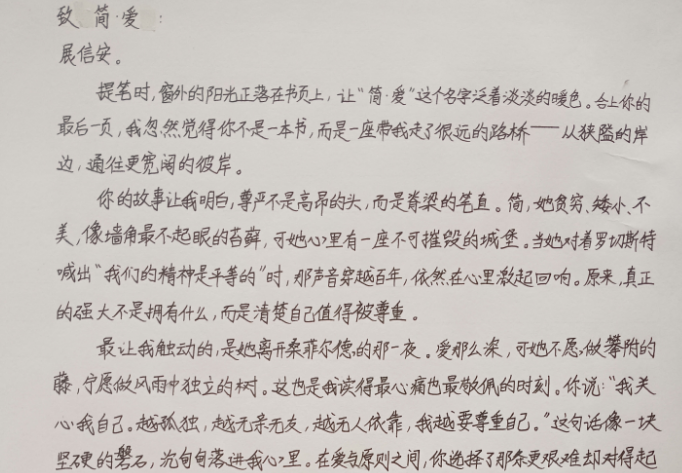 致 简·爱:
展信安。
提笔时,窗外的阳光正落在书页上,让“简·爱”这个名字泛着淡淡的暖色。合上你的
最后一页,我忽然觉得你不是一本书,而是一座带我走了很远的路桥——从狭隘的岸
边,通往更宽阔的彼岸。
你的故事让我明白,尊严不是高昂的头,而是脊梁的笔直。简,她贫穷、矮小、不
美,像墙角最不起眼的苔藓,可她心里有一座不可摧毁的城堡。当她对着罗切斯特
喊出“我们的精神是平等的”时,那声音穿越百年,依然在心里激起回响。原来,真正
的强大不是拥有什么,而是清楚自己值得被尊重。
最让我触动的,是她离开桑菲尔德的那一夜。爱那么深,可她不愿做攀附的
藤,宁愿做风雨中独立的树。这也是我读得最心痛也最敬佩的时刻。你说:“我关
心我自己。越孤独,越无亲无友,越无人依靠,我越要尊重自己。”这句话像一块
坚硬的磐石,沉甸甸落进我心里。在爱与原则之间,你选择了那条更艰难却对得起